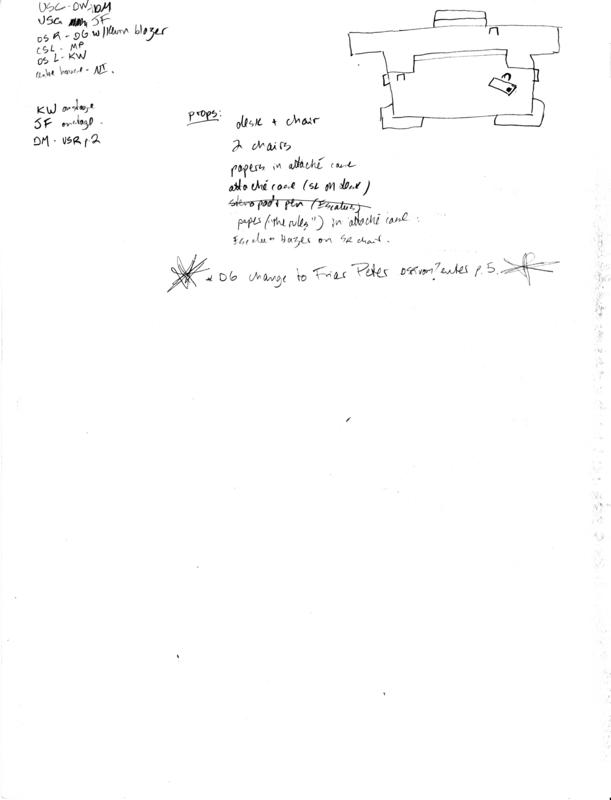 USC - DW, DM
USC JF
OSR - DG w/ blazer
CSL - MP
OSL - KW
house - NI.
KW onstage
JF onstage.
DM - USR p2
props:
desk + chair
2 chairs
papers in attaché case
attaché case (SR on desk)
steno pad + pen (Escalus)
paper ("the rules") in attaché case.
Escalus blazer on SR chair.
* DG change to Friar Peter ? enter p.5.